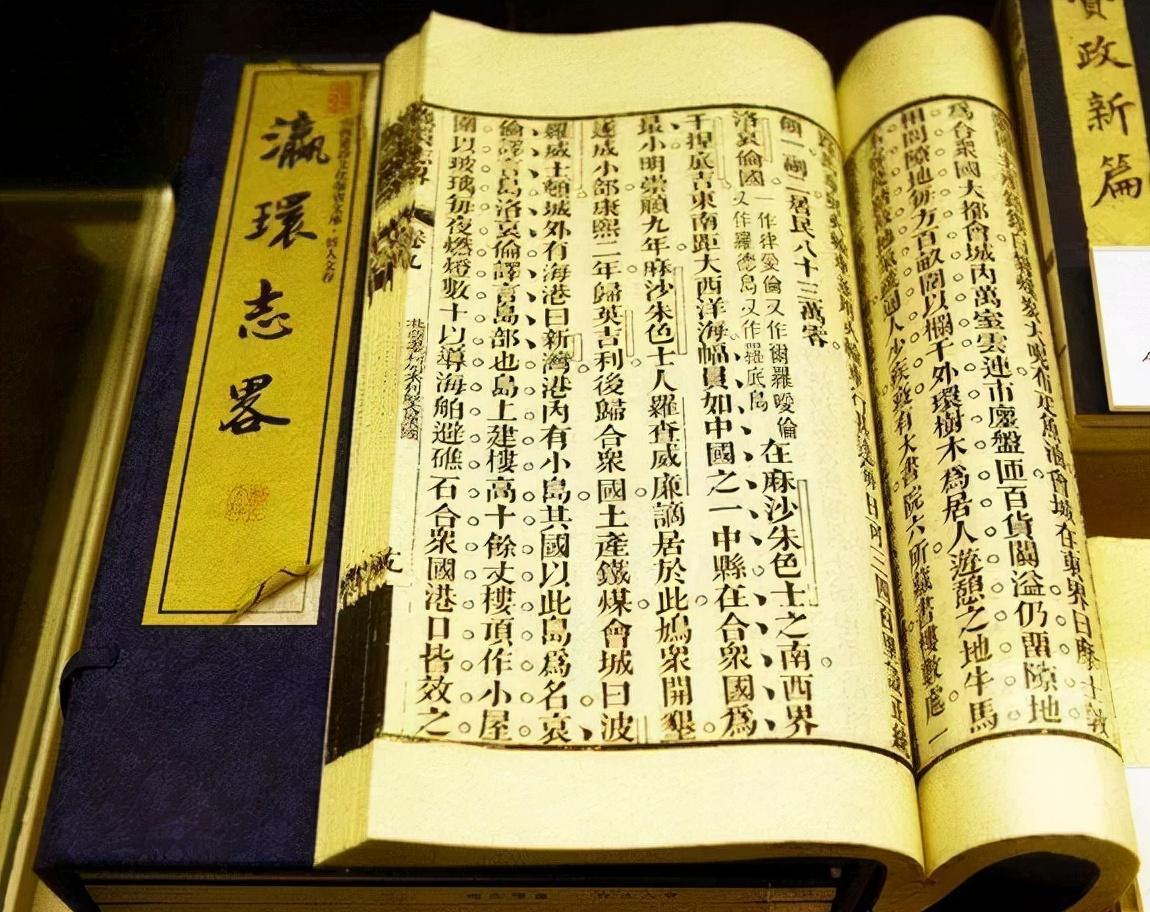 資政新篇
在東界曰摩士敦
爲合衆國大都會城內萬室雲連市廛盤匝百貨闐溢仍留隙地
相間隙地每方百畝闌以欄干外環樹木爲居人遊憩之地牛馬
有大書院六所藏書樓數處一
居民八十三萬零
洛哀倫國一作律愛倫又作爾羅噯倫又作羅德島又作羅底島在麻沙朱色士之南西界
干捏底吉東南距大西洋海幅員如中國之一中縣在合衆國爲
最小明崇禎九年麻沙朱色士人羅查威廉謫居於此鳩衆開墾
遂成小部康熙二年歸英吉利後歸合衆國土產鐵煤會城曰波
羅威士頓城外有海港曰新灣港內有小島其國以此島爲名哀
倫譯言島洛哀倫譯言島部也島上建樓高十餘丈樓頂作小屋
圍以玻璃每夜燃燈數十以導海舶避礁石合衆國港口皆效之
卷九
瀛環志畧